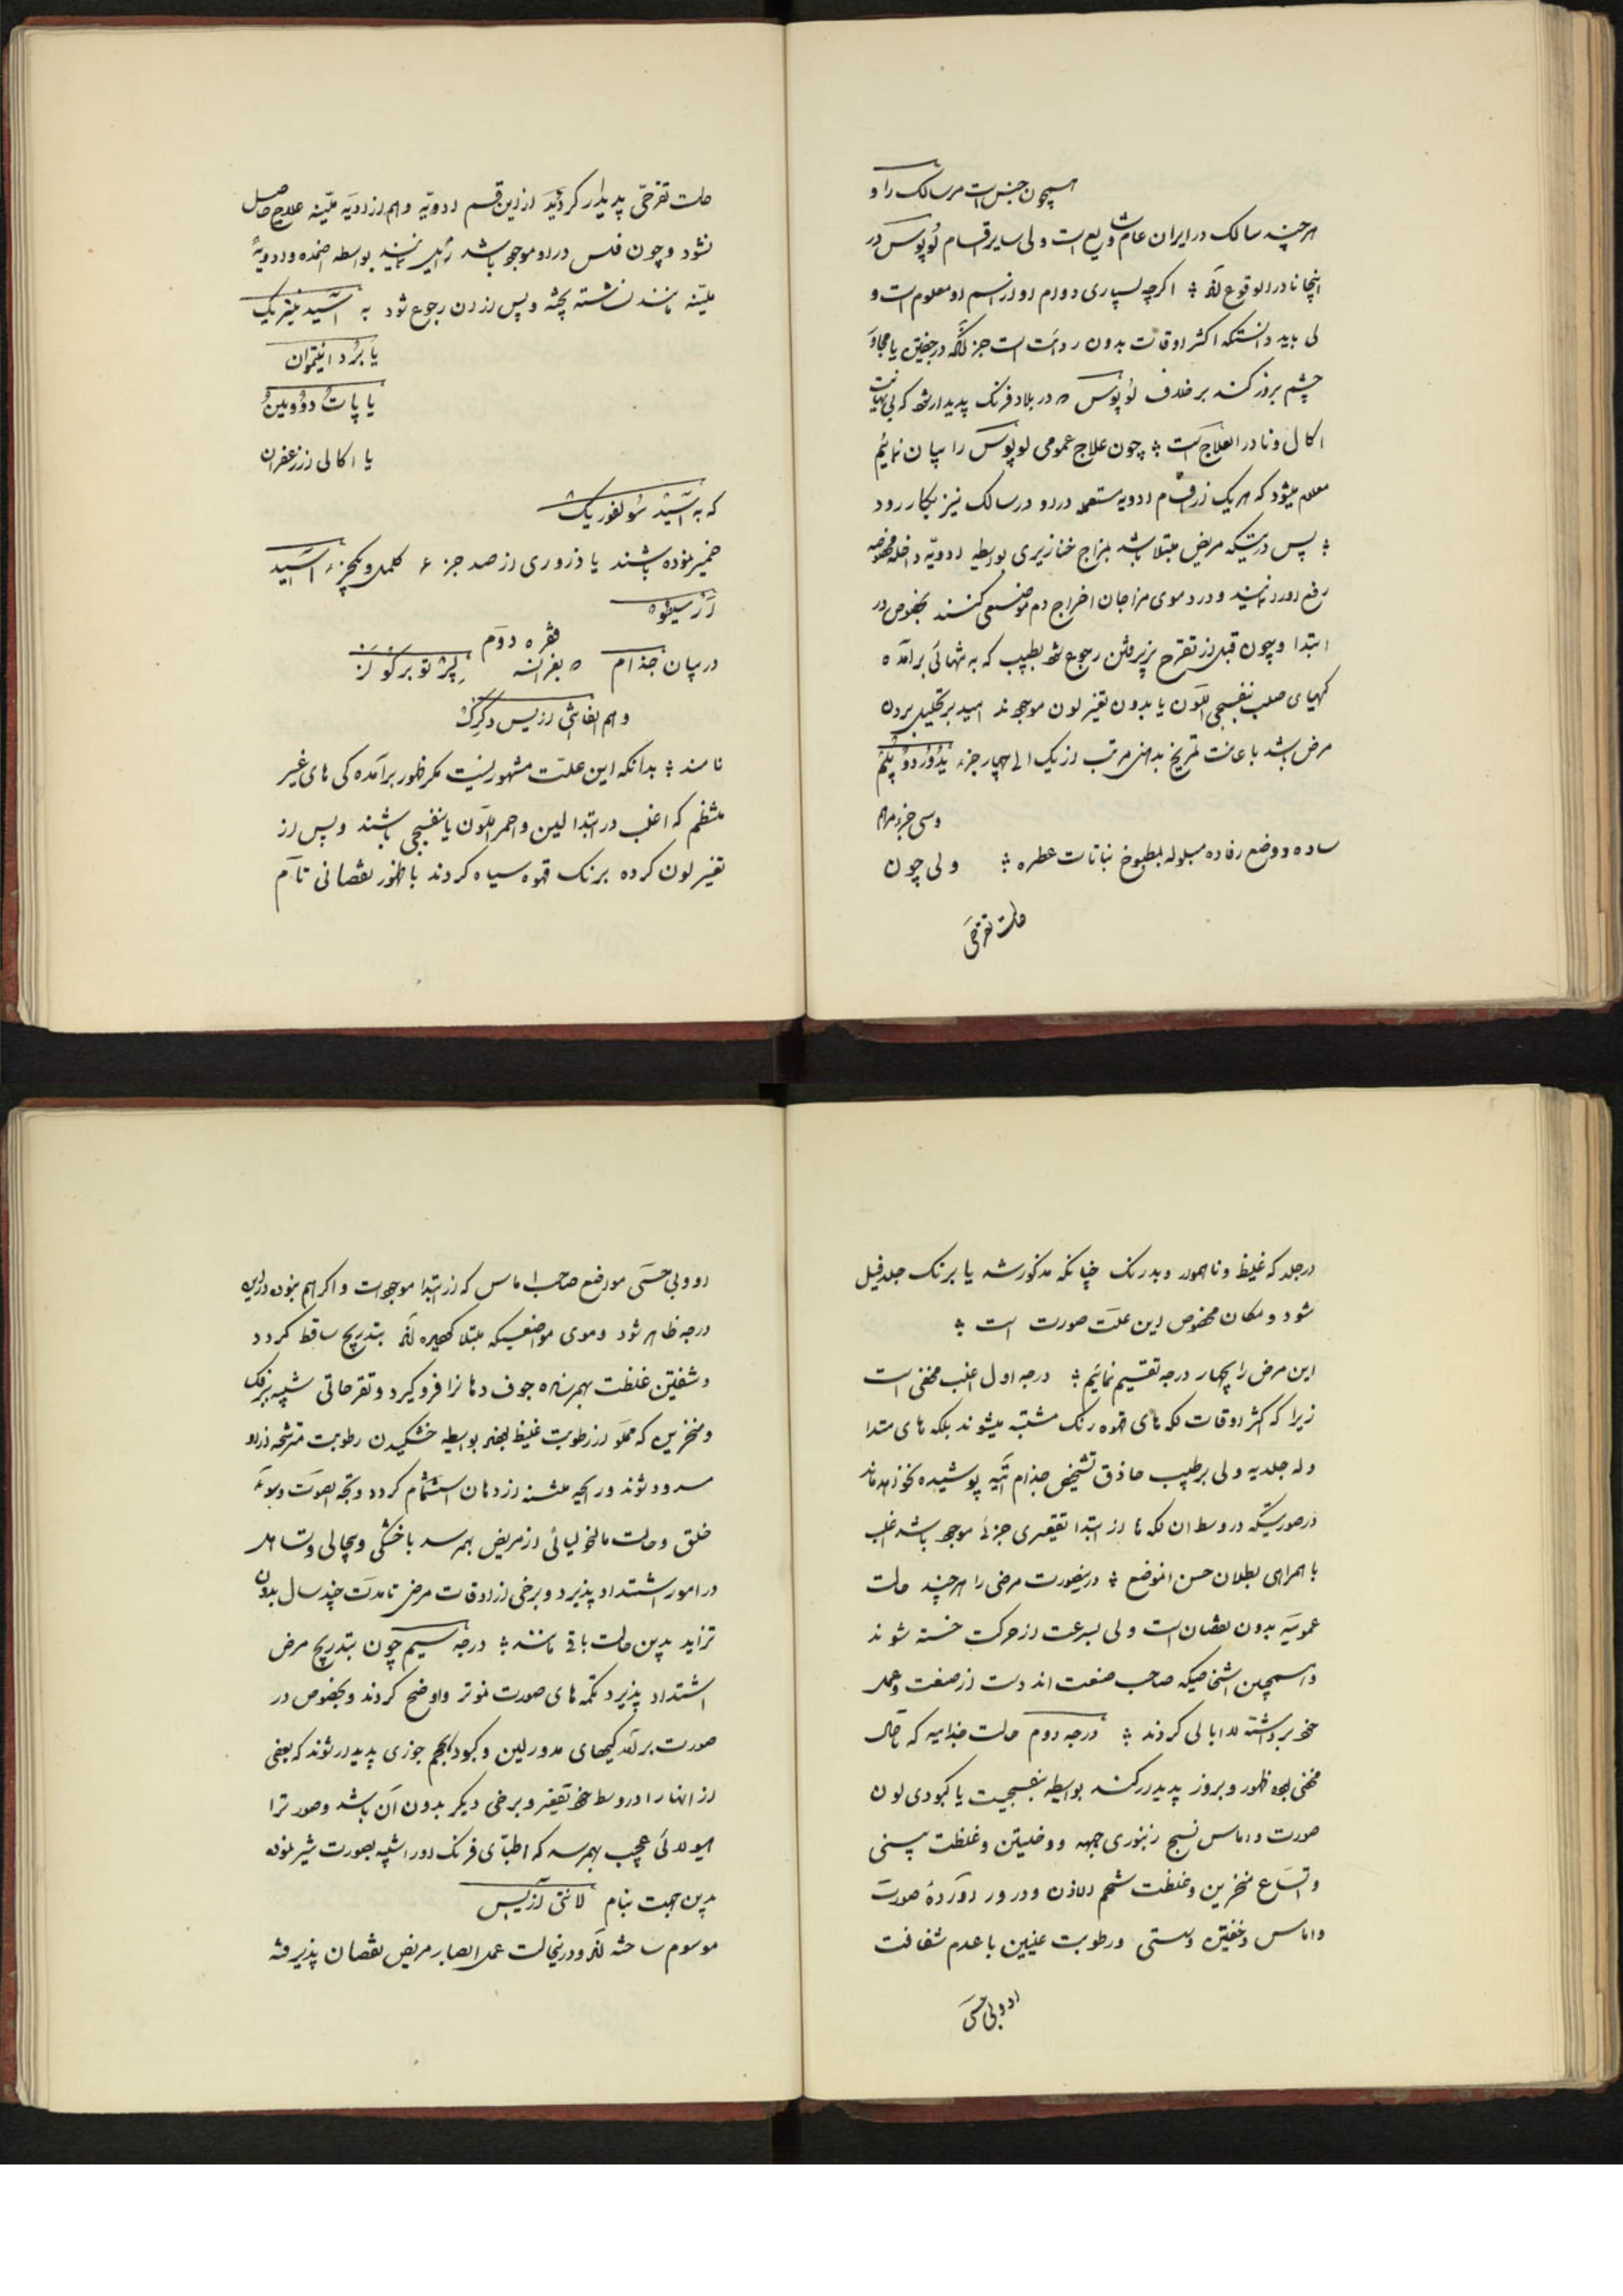 همچون جنس است مر سالک را و
هر چند سالک در ایران عام و شایع است ولی سایر اقسام لُوپوُس در
اینجا نادر الوقوع اند ؛ اگرچه بسیاری دوام او از اسم او معلوم است و
لی باید دانست که اکثر اوقات بدون ردائت است جز آنکه در جفن یا مجاور
چشم بروز کند بر خلاف لوُپوُس که در بلاد فرنک پدیدار شود که بی نهایت
اکال و نادر العلاج است ؛ چون علاج عمومی لوپوُس را بیان نمائیم
معلوم میشود که هر یک از اقسام ادویه مستعمله در او در سالک نیز بکار رود
؛ پس در صورتیکه مریض مبتلا باشد بمزاج خنازیری بواسطه ادویه داخله مخصوصه
رفع او را نمایند و در دموی مزاجان اخراج دم موضعی کنند بخصوص در
ابتدا و چون قبل از تقرح پذیرفتن رجوع شود بطبیب که به تنهائی برآمده
کیهای صلب بنفسجی اللون یا بدون تغیر لون موجودند امید بر تحلیل بردن
مرض باشد با عانت تمریخ بدهنی مرتب از یک الی چهار جزء یُدُورْ دوُ پلُمْ
و سی جزء مرهم
ساده و وضع رفاده مبلوله بمطبوخ نباتات عطره ؛ ولی چون
حالت تقرحی
حالت تقرحی پدیدار کردید از این قسم ادویه و هم از ادویه ملینه علاج حاصل
نشود و چون فلس در او موجود باشد زایل نمایند بواسطه اضمده و ادویهٔ
ملینه مانند نشاسته پخته و پس از آن رجوع شود به آسید نیتریک
یا بُرْد انتیموان
یا پاتُ دوُ وینُ
یا اکالی از زعفران
که به آسید سوُلفوریک
خمیر نموده باشند یا ذروری از صد جزء کلمل و یکجزء آسید
آرْسنیو
فقره دوم
در بیان جذام که بفرانسه لِپْرْ توبرکوُلزْ
و هم الفانتیازیس دِ گرِکْ
نامند ؛ بدانکه این علت مشهور نیست مکر ظهور برآمده کی های غیر
منتظم که اغلب در ابتدا لین و احمر اللون یا بنفسجی باشند و پس از
تغیر لون کرده برنک قهوه سیاه کردند با ظهور نقصانی تام
در جلد که غلیظ و ناهموار و بدرنک چنانکه مذکور شد یا برنک جلد فیل
شود و مکان مخصوص این علت صورت است ؛
این مرض را بچهار درجه تقسیم نمائیم ؛ درجه اول اغلب مخفی است
زیرا که اکثر اوقات لکه های قهوه رنک مشتبه میشوند بلکه های متدا
وله جلدیه ولی بر طبیب حاذق تشخیص جذام البته پوشیده نخواهد ماند
در صورتیکه در وسط ان لکه ها از ابتدا تقعیری جزئی موجود باشد اغلب
با همراهی بطلان حس انموضع ؛ در اینصورت مرضی را هر چند حالت
عمومیه بدون نقصان است ولی بسرعت از حرکت خسته شوند
و همچنین اشخاصیکه صاحب صنعت اند دست از صنعت و عمل
خود برداشته لا ابالی کردند ؛ درجه دوم حالت جذامیه که تا حال
مخفی بود ظهور و بروز پدیدار کند بواسطه بنفسجیت یا کبودی لون
صورت و اماس نسج زنبوری جبهه و وجنتین و غلظت بینی
و اتساع منخرین و غلظت شحم الاذن و در ادوار دآوردهٔ صورت
و اماس جفنین و سستی و رطوبت عینین با عدم شفافت
او و بی حسّی
او و بی حسّی مواضع صاحب اماس که از ابتدا موجود است و اکر هم نبود در این
درجه ظاهر شود و موی مواضعیکه مبتلا کردیده اند بتدریج ساقط کردد
و شفتین غلظت بهم رسانده جوف دهانرا فرو گیرد و تقرحاتی شبیه برفک
و منخرین که مملو از رطوبت غلیظ اند بواسطه خشکیدن رطوبت مترشحه از او
مسدود شوند و رایحه منتنه از دهان استشمام کردد و بحّة الصوت و سوء
خلق و حالت مالیخولیائی از مریض بهم رسد با خشکی و بیحالی و تساهل
در امور اشتداد پذیرد و برخی از اوقات مرض تا مدت چند سال بدون
تزاید بدین حالت باقی مانند ؛ درجه سیم چون بتدریج مرض
اشتداد پذیرد تکمه های صورت نمو تر و اوضح کردند و بخصوص در
صورت برآمده کیهای مدور لین و کبود بحجم جوزی پدیدار شوند که بعضی
از انها را در وسط خود تقعیر و برخی دیکر بدون آن باشد و صورترا
هیولائی عجیب بهم رسد که اطبای فرنک او را شبیه بصورت شیر نموده
بدین جهت بنام لانتی آزیس
موسوم ساخته اند و در اینحالت عمل ابصار مریض نقصان پذیرفته